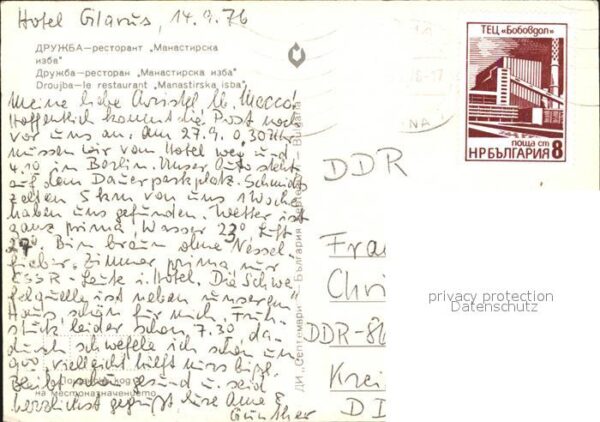 Hotel Glarus, 14.9.76
ДРУЖБА—ресторант „Манастирска
изба"
Дружба—ресторан „Манастирска изба"
Droujba—le restaurant „Manastirska isba"
Meine liebe Christel u.
Hoffentlich kommt die Post noch
vor uns an. Am 27.9. 0,30 Uhr
müssen wir vom Hotel weg und
4.10 in Berlin. Unser Auto steht
auf dem Dauerparkplatz. Schmidts
zelten 5 km von uns 1 Woche
haben uns gefunden. Wetter ist
ganz prima, Wasser 23° Luft
27°. Bin braun ohne Nessel-
fieber. Zimmer prima, nur
ČSSR-Leute i. Hotel. Die Schwe-
felquelle ist neben unserem
Haus, schön für mich. Früh-
stück leider schon 7.30, da-
durch schwefele ich schon um
900, vielleicht hilft
Bleibt schön gesund u. seid
herzlichst gegrüßt
Günther
на местоназначението
ДИ „Септември"—България
Bulgaria
ТЕЦ „Бобовдол"
поща ст
НР БЪЛГАРИЯ 8
NA
DDR
Fra
Chri
DDR-86
Krei
DD
privacy protection
Datenschutz